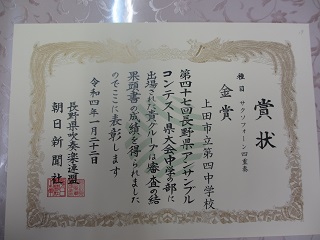 賞状
種目 サクソフォーン四重奏
金賞
上田市立第四中学校
第四十七回長野県アンサンブル
コンテスト県大会中学の部に
出場された貴グループは審査の結
果頭書の成績を得られました
のでここに表彰します
令和四年一月二十二日
長野県吹奏楽連盟
朝日新聞社